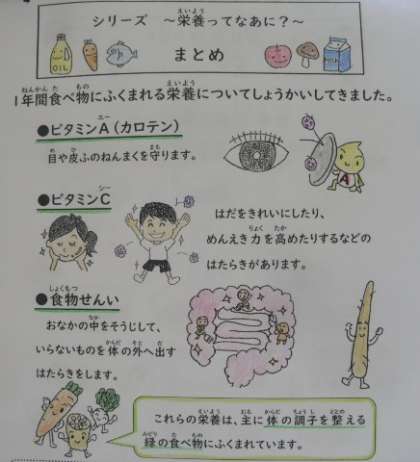 シリーズ ～栄養ってなあに？～
まとめ
OIL
牛乳
1年間食べ物にふくまれる栄養についてしょうかいしてきました。
●ビタミンA（カロテン）
目や皮ふのねんまくを守ります。
A
●ビタミンC
はだをきれいにしたり、
めんえき力を高めたりするなどの
はたらきがあります。
●食物せんい
おなかの中をそうじして、
いらないものを体の外へ出す
はたらきをします。
これらの栄養は、主に体の調子を整える
緑の食べ物にふくまれています。